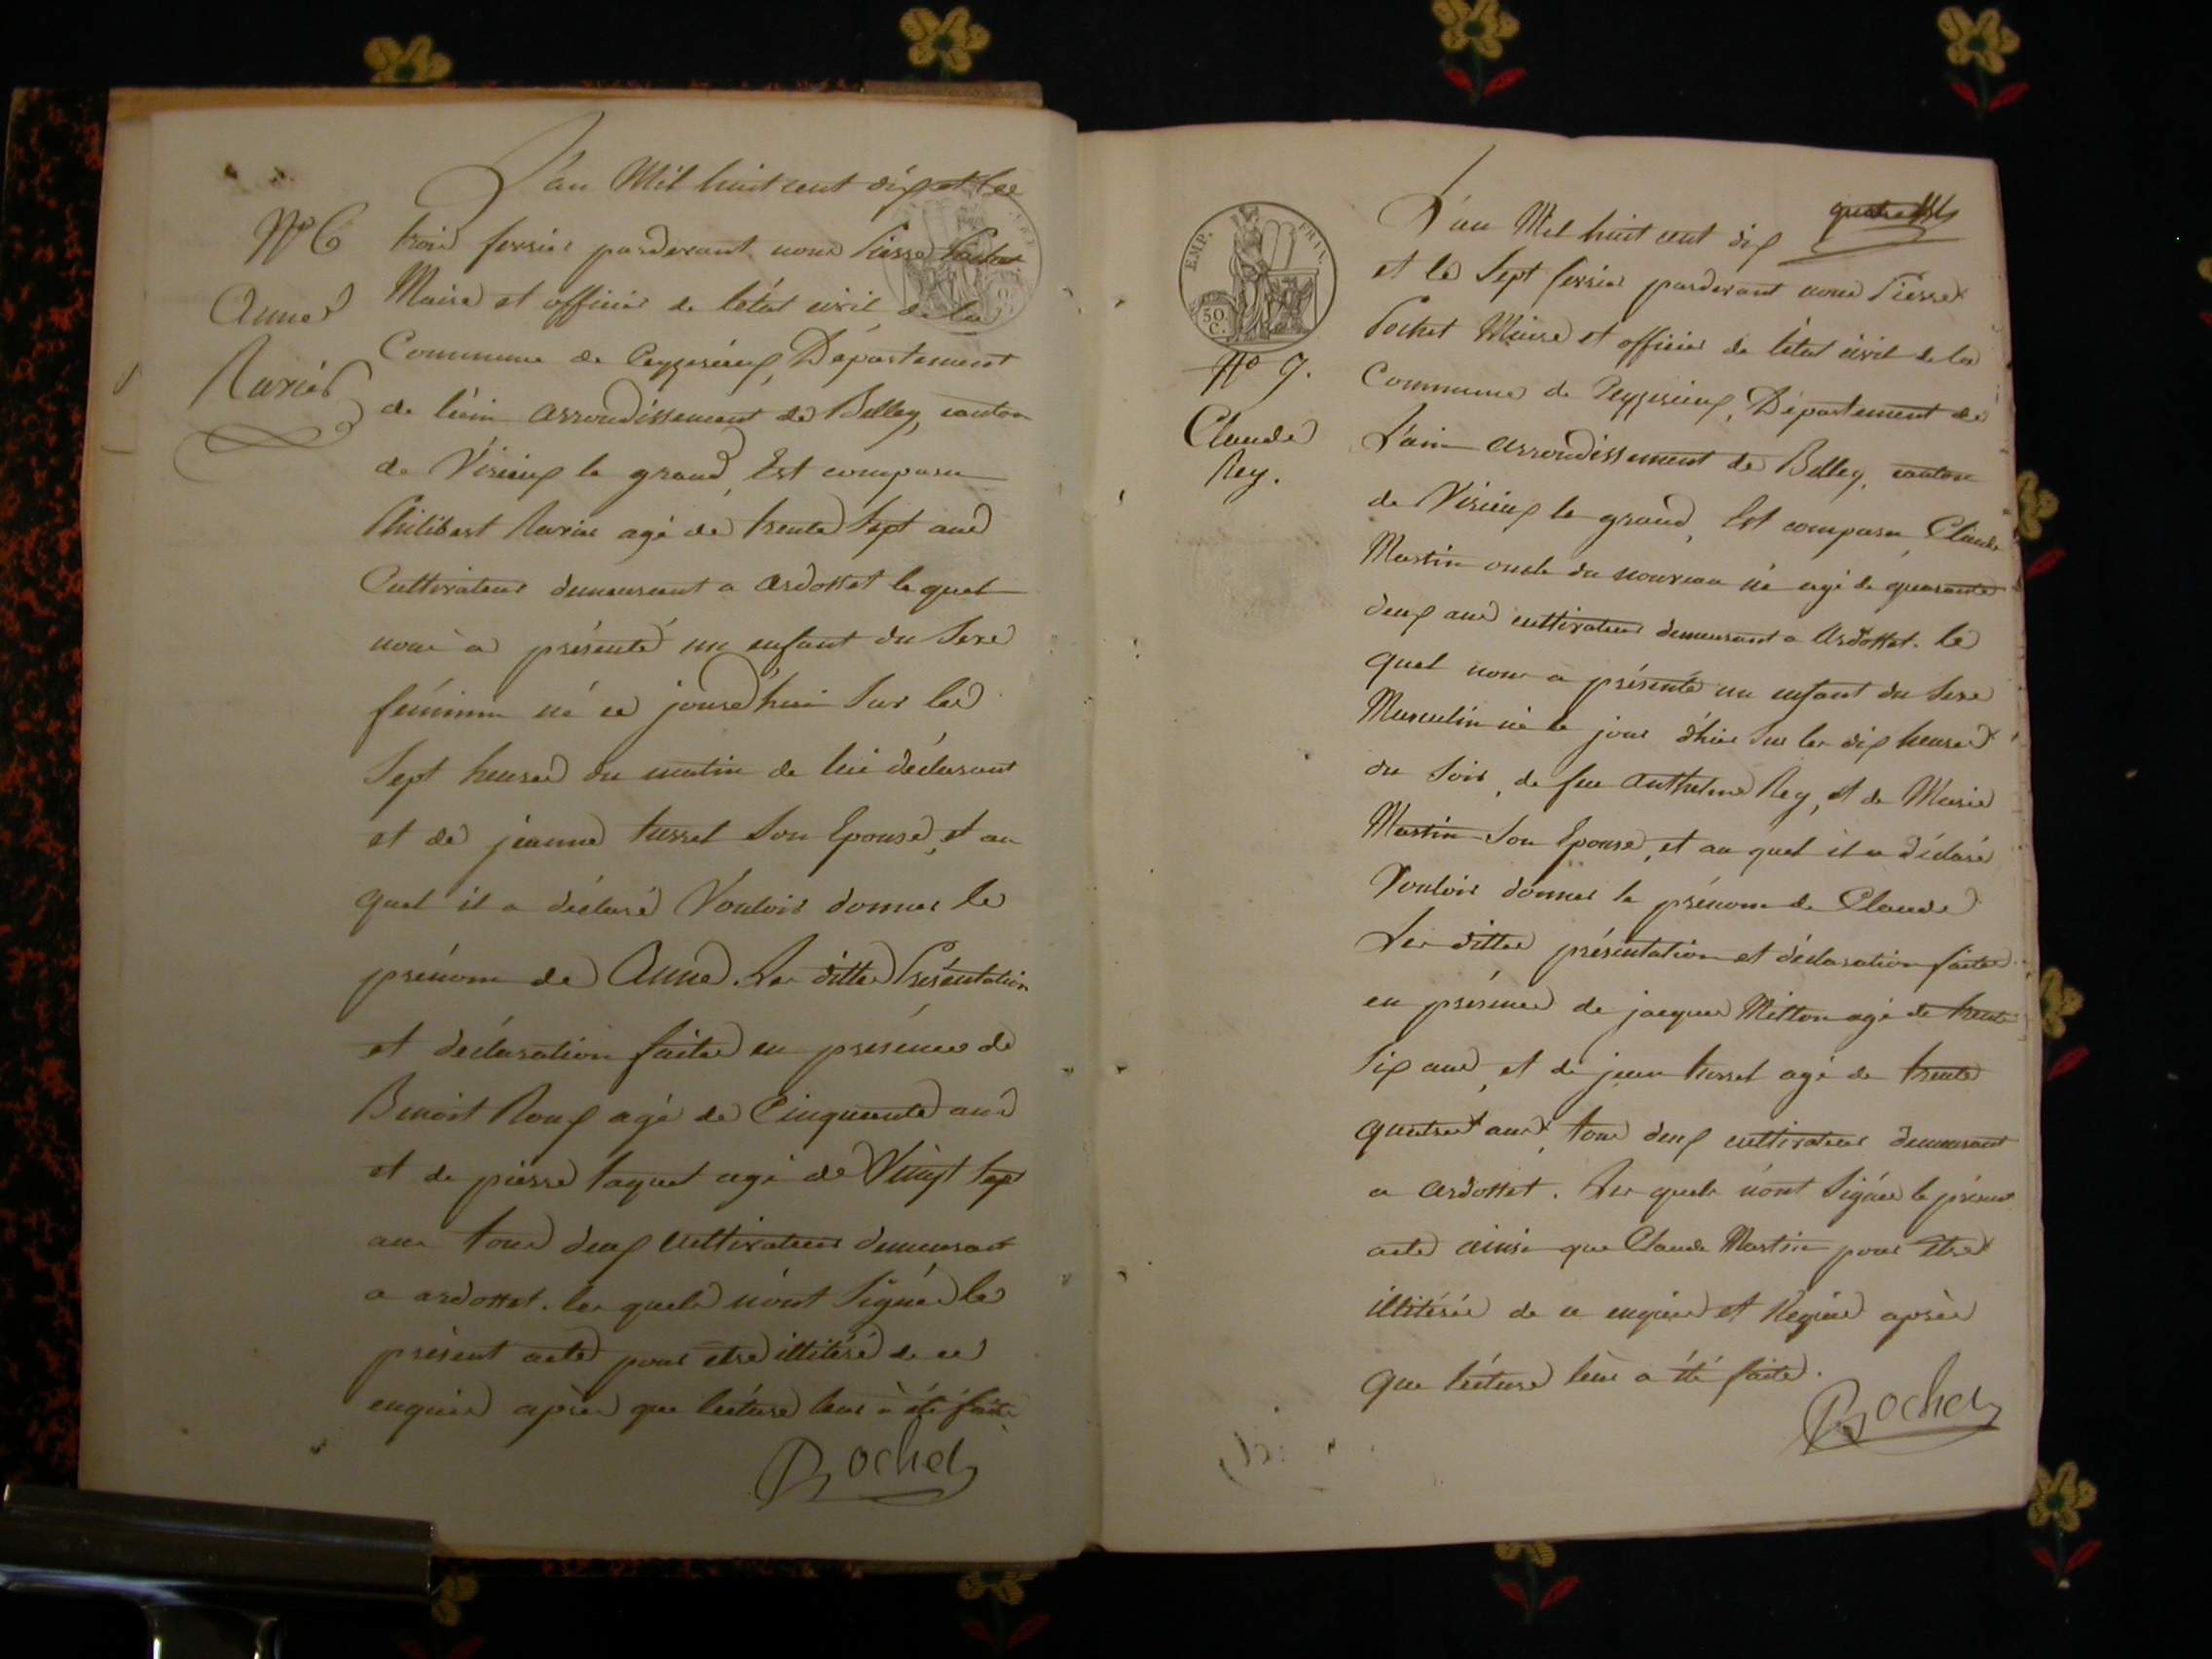 L'an Mil huit cent dix et le
trois fevrier pardevant nous Pierre Pochet
Maire et officier de l'état civil de la
Commune de Peyzieux, Département
de l'ain arrondissement de Belley, canton
de Virieux le grand, Est comparu
Philibert Ravier agé de trente sept ans
Cultivateur demeurant a ardosset le quel
nous a présenté un enfant du Sexe
féminin né ce jourd'hui Sur les
Sept heures du matin de lui déclarant
et de jeanne Son Epouse, et au
quel il a déclaré Vouloir donner le
prénom de Anne. Les dittes Présentation
et déclaration faites en présence de
Benoit Roux agé de Cinquante ans
et de pierre taquet agé de Vingt sept
ans tous deux cultivateurs demeurant
a ardosset. les quels n'ont Signés le
présent acte pour etre illitéré de ce
enquis après que lécture leur à été faite
Pochet
No 6
Anne
Ravier
quatre
L'an Mil huit cent dix
et le Sept fevrier pardevant nous Pierre
Pochet Maire et officier de l'état civil de la
Commune de Peyzieux, Département de
L'ain arrondissement de Belley, canton
de Virieux le grand, Est comparu Claude
Martin oncle du nouveau né agé de quarante
deux ans cultivateur demeurant a Ardosset. le
quel nous a présenté un enfant du Sexe
Masculin né le jour d'hier Sur les dix heures
du Soir, de feu Anthelme Rey, et de Marie
Martin Son Epouse, et au quel il a déclaré
Vouloir donner le prénom de Claude
Les dittes présentation et déclaration faites
en présence de jacques Mitton agé de trente
Six ans, et de jean agé de trente
quatre ans, tous deux cultivateurs demeurant
a ardosset. Les quels n'ont Signés le présent
acte ainsi que Claude Martin pour être
illitérés de ce enquis et Requis après
que lécture leur a été faite.
Pochet
EMP. FRAN.
50
C.
No 7.
Claude
Rey.